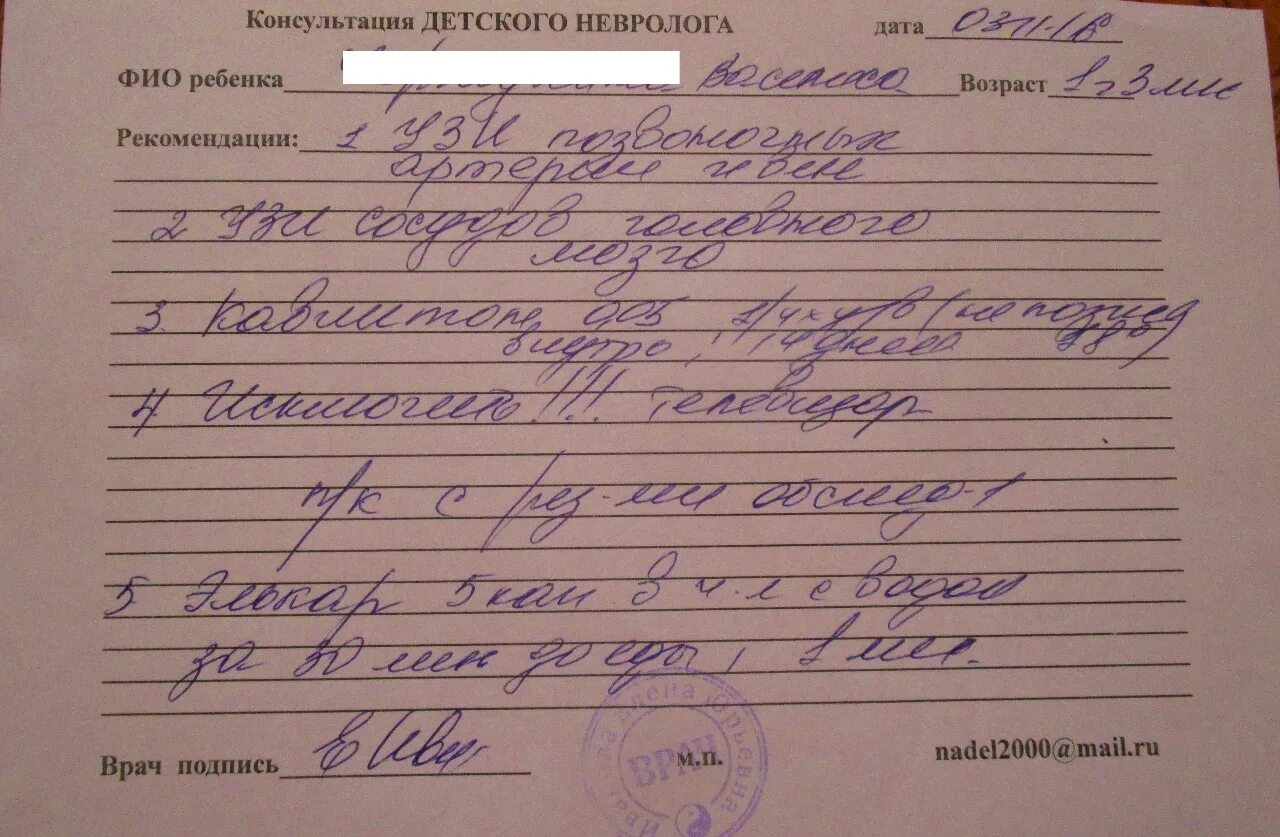 Консультация ДЕТСКОГО НЕВРОЛОГА дата 03 11-16
ФИО ребенка Возраст 1 г 3 мес
Рекомендации: 1 УЗИ позвоночных
артерий и вен
2 УЗИ сосудов головного
мозга
3. Кавинтон 0,05 (не поздн
внутрь, дней
4 Исключить!!! телевизор
п/к с рез-ми обслед-я
5 Элькар 5 кап в ч.л с водой
за 30 мин до еды, 1 мес.
Врач подпись м.п. nadel2000@mail.ru
Елена Юрьевна
ВРАЧ